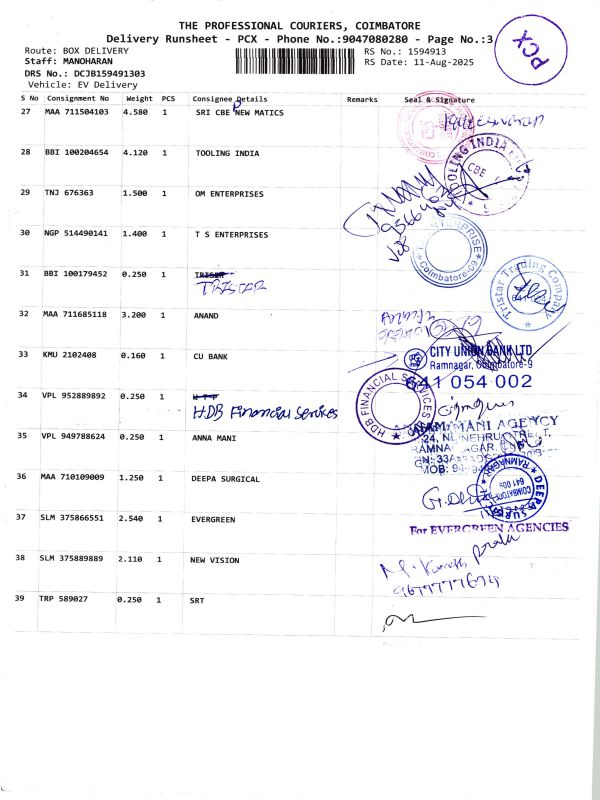 THE PROFESSIONAL COURIERS, COIMBATORE
Delivery Runsheet - PCX - Phone No.:9047080280 - Page No.:3
PCX
Route: BOX DELIVERY
RS No.: 1594913
Staff: MANOHARAN
RS Date: 11-Aug-2025
DRS No.: DCJB159491303
Vehicle: EV Delivery
S No Consignment No Weight PCS Consignee Details Remarks Seal & Signature
27 MAA 711504103 4.580 1 SRI CBE NEW MATICS
28 BBI 100204654 4.120 1 TOOLING INDIA
TOOLING INDIA
CBE
29 TNJ 676363 1.500 1 OM ENTERPRISES
30 NGP 514490141 1.400 1 T S ENTERPRISES
Coimbatore-09
31 BBI 100179452 0.250 1 TRISER
TRISTAR
Tristar Trading Company
32 MAA 711685118 3.200 1 ANAND
33 KMU 2102408 0.160 1 CU BANK
CITY UNION BANK LTD
Ramnagar, Coimbatore-9
641 054 002
34 VPL 952889892 0.250 1
HDB Financial Services
HDB FINANCIAL SERVICES
35 VPL 949788624 0.250 1 ANNA MANI
MANI AGENCY
36 MAA 710109009 1.250 1 DEEPA SURGICAL
RAMNAGAR
COIMBATORE
641 009
37 SLM 375866551 2.540 1 EVERGREEN
For EVERGREEN AGENCIES
38 SLM 375889889 2.110 1 NEW VISION
39 TRP 589027 0.250 1 SRT